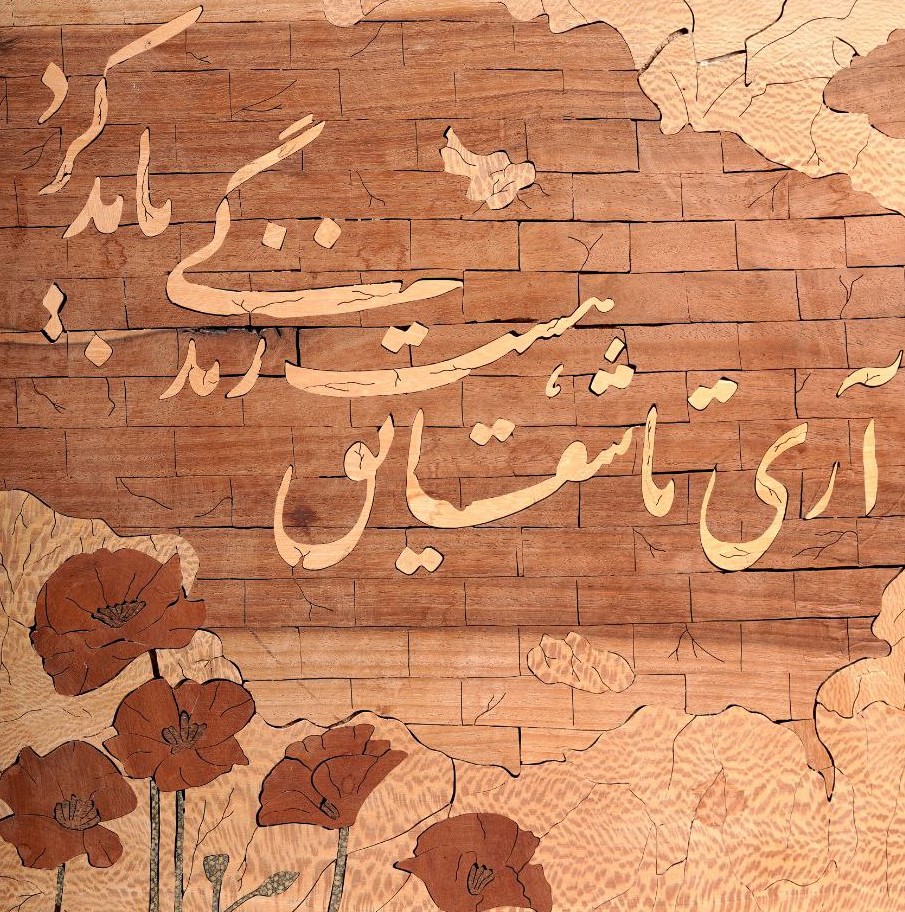 آری تا شقایق هست، زندگی باید کرد